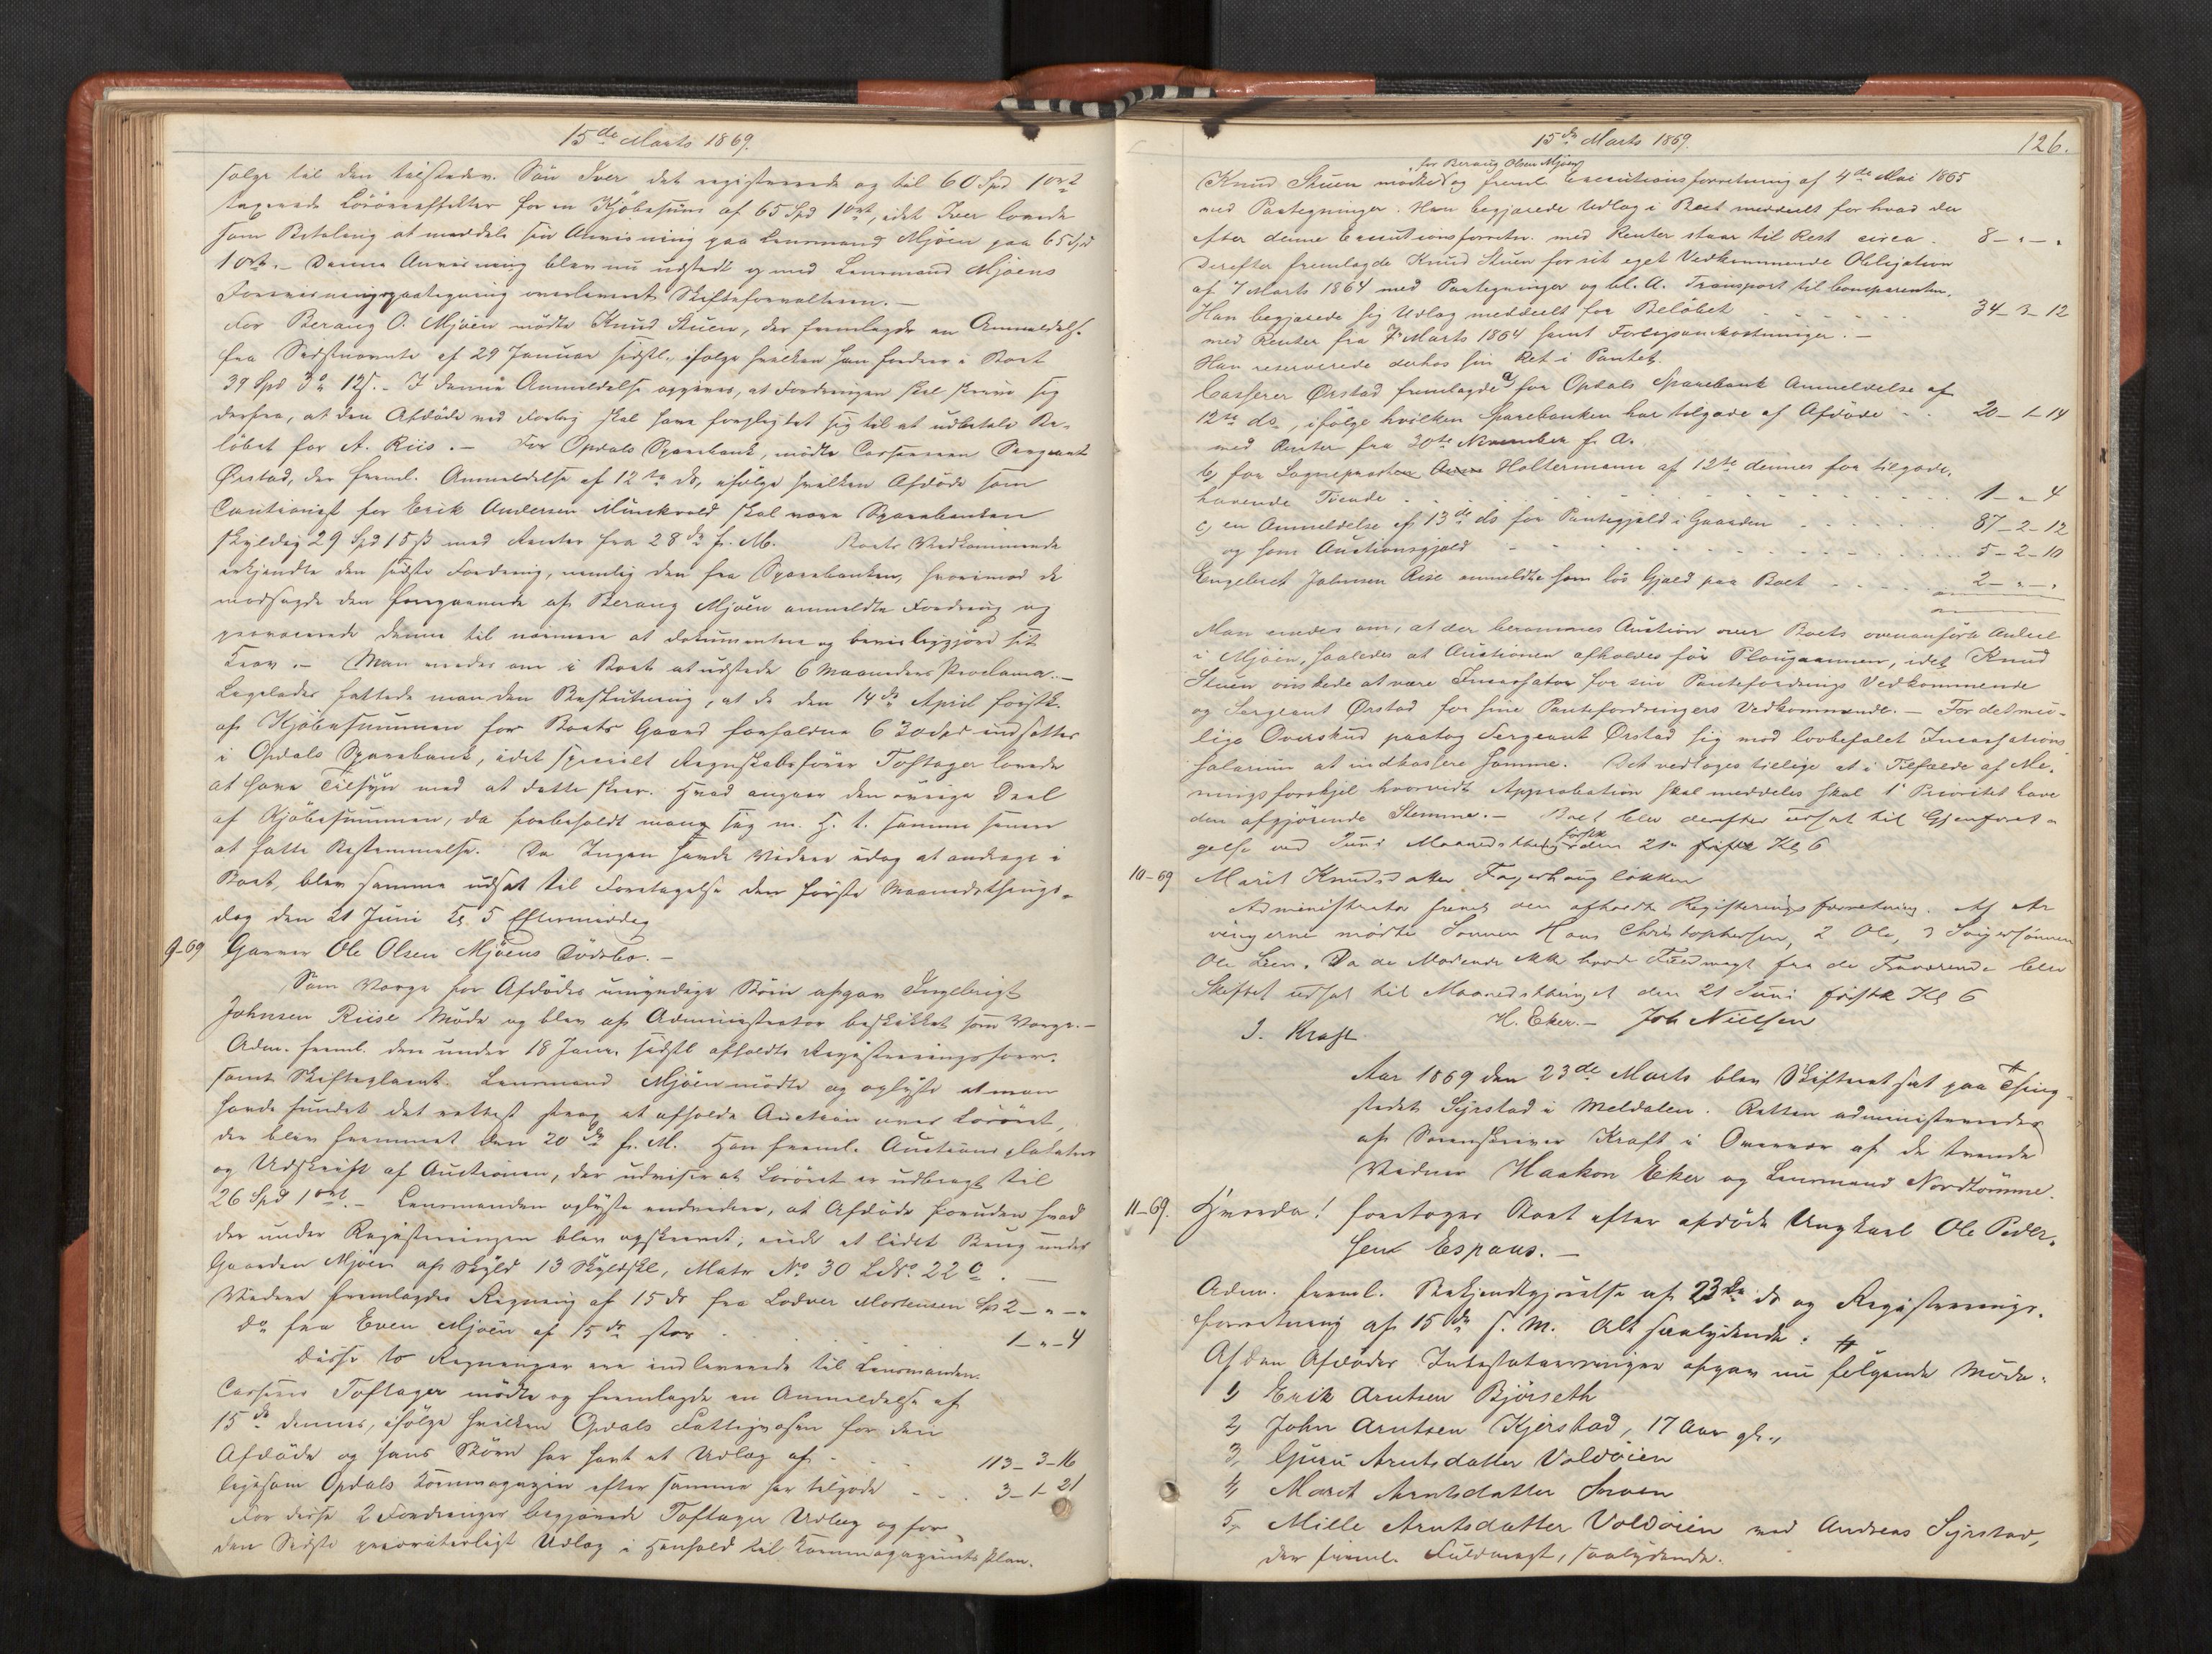 15de Marts 1869.
følge til den tilstedev. Søn Iver det registrerede og til 60 Spd 1 ort
taxerede Løsöreeffekter for en Kjöbesum af 65 Spd 1 ort, idet Iver lovede
som Betaling at meddele sin Anvisning paa Lensmand Mjöen paa 65 Spd
1 ort. – Denne Anvisning blev nu udstedt og med Lensmand Mjöens
paategning overleveret Skifteforvalteren. –
For Beraug O. Mjöen mödte Knud Stuen, der fremlagde en Anmeldelse
fra Sidstnævnte af 29 Januar sidstl., ifølge hvilken han fordrer i Boet
39 Spd 3 o 12 s. – I denne Anmeldelse opgives, at Fordringen skal skrive sig
derfra, at den Afdöde ved Forlig skal have forpligtet sig til at udbetale Be-
löbet for A. Riis. – For Opdals Sparebank, mödte Cassereren Sergeant
Örstad, der freml. Anmeldelse af 12te ds, ifölge hvilken Afdöde som
Cautionist for Erik Andersen Munkvold skal være Sparebanken
skyldig 29 Spd 15 ß med Renter fra 28de f. M. Boets Vedkommende
erkjendte den sidste Fordring, nemlig den fra Sparebanken, hvorimod de
modsagde den foregaaende af Beraug Mjöen anmeldte Fordring og
provocerede denne til nærmere at dokumentere og bevisliggjöre sit
Krav. – Man enedes om i Boet at udstede 6 Maaneders Proclama. –
Ligeledes fattede man den Beslutning, at de den 14de April förstk.
af Kjöbesummen for Boets Gaard forfaldne 630 Spd indsættes
i Opdals Sparebank, idet specielt Regnskabsförer Toftager lovede
at have Tilsyn med at dette skeer. Hvad angaaer den övrige Deel
af Kjöbesummen, da forbeholdt man sig m. H. t. samme senere
at fatte Bestemmelse. Da Ingen havde Videre idag at andrage i
Boet, blev samme udsat til Foretagelse den förste Maanedsthings-
dag den 21 Juni Kl 5 Eftermiddag
9-69 Garver Ole Olsen Mjöens Dödsbo. –
Som Værge for Afdödes umyndige Börn afgav Ingebrigt
Johnsen Riise Möde og blev af Administrator beskikket som Værge. –
Adm. freml. den under 18 Janr. sidstl afholdte Registreringsforr.
samt Skifteplacat. Lensmand Mjöen mödte og oplyste at man
havde fundet det rettest strax at afholde Auction over Lösöret,
der blev fremmet den 20de f. M. Han freml. Auctions plakaten
og Udskrift af Auctionen, der udviser at Lösöret er udbragt til
26 Spd 1 ort. – Lensmanden oplyste endvidere, at Afdöde foruden hvad
der under Registreringen blev opskrevet, eiede et lidet Brug under
Gaarden Mjöen af Skyld 13 Skylskl, Matr No 30 LNo. 22 c. –
Videre fremlagdes Regning af 15 ds fra Lodver Mortensen Sp 2 – " – "
do fra Even Mjöen af 15de stor . . . . 1 – " – 4
Disse to Regninger ere indleverede til Lensmanden.
Casserer Toftager mödte og fremlagde en Anmeldelse af
15de dennes, ifölge hvilken Opdals Fattigvæsen for den
Afdöde og hans Börn har havt et Udlæg af . . . 113 – 3 – 16
ligesom Opdals Kornmagazin efter samme har tilgode . . . 3 – 1 – 21
For disse 2 Fordringer begjærede Toftager Udlæg og for
den Sidste prioriterligt Udlæg i Henhold til Kornmagazinets Plan.
15de Marts 1869. 126.
for Beraug Olsen Mjöen
Knud Stuen mödte og freml. Executionsforretning af 4de Mai 1865
med Paategninger. Han begjærede Udlæg i Boet meddeelt for hvad der
efter denne Executionsforretn. med Renter staar til Rest circa . 8 – " – "
Derefter fremlagde Knud Stuen for sit eget Vedkommende Obligation
af 7 Marts 1864 med Paategninger og bl. A. Transport til Comparenten.
Han begjærede sig Udlæg meddeelt for Belöbet . . . . 34 – 3 – 12
med Renter fra 7 Marts 1864 samt Forligsomkostninger. –
Han reserverede derhos sin Ret i Pantet.
Casserer Örstad fremlagde a) for Opdals Sparebank Anmeldelse af
12te ds, ifölge hvilken Sparebanken har tilgode af Afdöde . . 20 – 1 – 14
med Renter fra 30te November f. A.
b) for Sognepræsten Holtermann af 12te dennes for tilgode-
havende Tiende . . . . 1 – " – 4
c) en Anmeldelse af 13de ds for Pantegjæld i Gaarden . . . 87 – 2 – 12
og som Auctionsgjæld . . . . 5 – 2 – 10
Engebret Johnsen Rise anmeldte som lös Gjæld paa Boet . . . 2 – " – "
Man enedes om, at der berammes Auction over Boets ovenanförte Anteel
i Mjöen, saaledes at Auctionen afholdes för Plougaannen, idet Knud
Stuen önskede at være Incassator for sin Pantefordrings Vedkommende
og Sergeant Örstad for sine Pantefordringers Vedkommende. – For det mu-
lige Overskud paatog Sergeant Örstad sig mod lovbefalet Incassations-
salarium at indkassere samme. Det vedtoges tillige at i Tilfælde af Me-
ningsforskjel hvorvidt Approbation skal meddeles skal 1 Prioritet have
den afgjörende Stemme. – Boet blev derefter udsat til Gjenforeta-
gelse ved Juni Maanedsthing förstk den 21de Kl 6
10-69 Marit Knudsdatter Fagerhaug lökken
Administrator freml den afholdte Registreringsforretning. Af Ar-
vingerne mödte Sönnen Hans Christophersen, 2 Ole, 3 Svigersönnen
Ole Leen. Da de Mödende ikke havde Fuldmagt fra de Fraværende blev
Skiftet udsat til Maanedsthinget den 21 Juni förstk Kl 6
J. Kraft H. Eker. – Joh Nielsen
Aar 1869 den 23de Marts blev Skifteret sat paa Thing-
stedet Syrstad i Meldalen. Retten administreredes
af Sorenskriver Kraft i Overvær af de tvende
Vidner Haakon Eker og Lensmand Nordtömme.
11-69. Hvorda! foretoges Boet efter afdöde Ungkarl Ole Peder-
sen Espaas. –
Adm. freml. Bekjendtgjörelse af 23de ds og Registrerings-
forretning af 15de f. M. Alt saalydende: #
Af den Afdödes Intestatarvinger afgav nu fölgende Möde:
1, Erik Arntsen Björseth
2, John Arntsen Kjerstad, 17 Aar gl.,
3, Guru Arntsdatter Voldöien
4, Marit Arntsdatter
5, Mille Arntsdatter Voldöien med Andreas Syrstad,
der freml. Fuldmagt, saalydende.